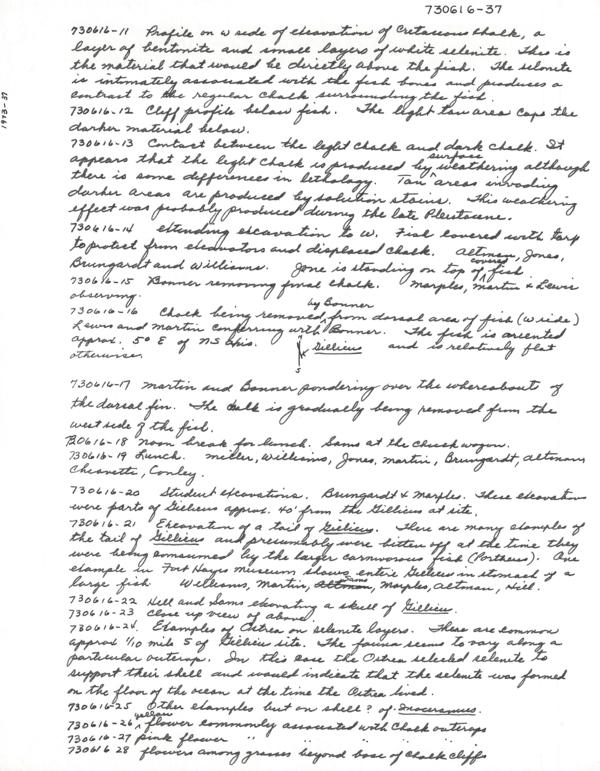 730616-37
1973-37
730616-11 Profile on W side of excavation of Cretaceous chalk, a
layer of bentonite and small layers of white selenite. This is
the material that would be directly above the fish. The selenite
is intimately associated with the fish bones and produces a
contrast to the regular chalk surrounding the fish.
730616-12 Cliff profile below fish. The light tan area caps the
darker material below.
730616-13 Contact between the light chalk and dark chalk. It
appears that the light chalk is produced by surface weathering although
there is some differences in lithology. Tan areas invading
darker areas are produced by solution stains. This weathering
effect was probably produced during the late Pleistocene.
730616-14 extending excavation to W. Fish covered with tarp
to protect from excavators and displaced chalk. Altman, Jones,
Brungardt and Williams. Jone is standing on top of covered fish
730616-15 Bonner removing final chalk. Marples, Martin & Lewis
observing.
730616-16 Chalk being removed by Bonner from dorsal area of fish (W side)
Lewis and Martin conferring with Bonner. The fish is oriented
approx. 5° E of NS axis. N S Gillicus and is relatively flat
otherwise.
730616-17 Martin and Bonner pondering over the whereabouts of
the dorsal fin. The chalk is gradually being removed from the
west side of the fish.
730616-18 noon break for lunch. Sams at the chuck wagon.
730616-19 Lunch. Miller, Williams, Jones, Martin, Brungardt, Altman,
Chesnette, Conley.
730616-20 Student excavations. Brungardt & Marples. These excavations
were parts of Gillicus approx. 40' from the Gillicus at site.
730616-21 Excavation of a tail of Gillicus. There are many examples of
the tail of Gillicus and presumably were bitten off at the time they
were being consumed by the larger carnivorous fish (Portheus). One
example in Fort Hays Museum shows entire Gillicus in stomach of a
large fish Williams, Martin, Altman, Sams, Marples, Altman, Hill.
730616-22 Hill and Sams excavating a skull of Gillicus.
730616-23 Close up view of above.
730616-24. Examples of Ostrea on selenite layers. These are common
approx 1/10 mile S of Gillicus site. The fauna seems to vary along a
particular outcrop. In this case the Ostrea selected selenite to
support their shell and would indicate that the selenite was formed
on the floor of the ocean at the time the Ostrea lived.
730616-25 Other examples but on shell? of Inoceramus.
730616-26 yellow flower commonly associated with Chalk outcrops
730616-27 pink flower " " " " "
730616 28 flowers among grasses beyond base of chalk cliffs